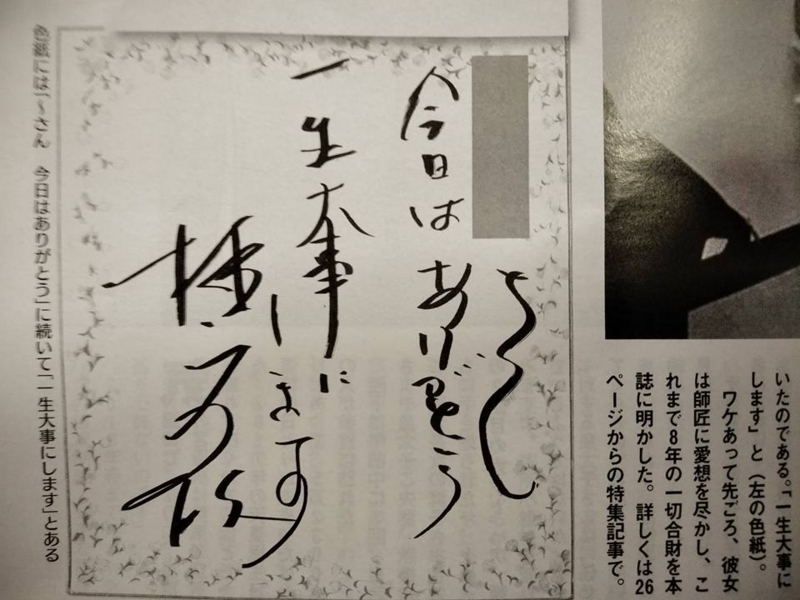 いたのである。「一生大事に
します」と（左の色紙）。
ワケあって先ごろ、彼女
は師匠に愛想を尽かし、こ
れまで8年の一切合財を本
誌に明かした。詳しくは26
ページからの特集記事で。
さん
今日はありがとう
一生大事にします
桂文枝
色紙には「〜さん　今日はありがとう」に続いて「一生大事にします」とある